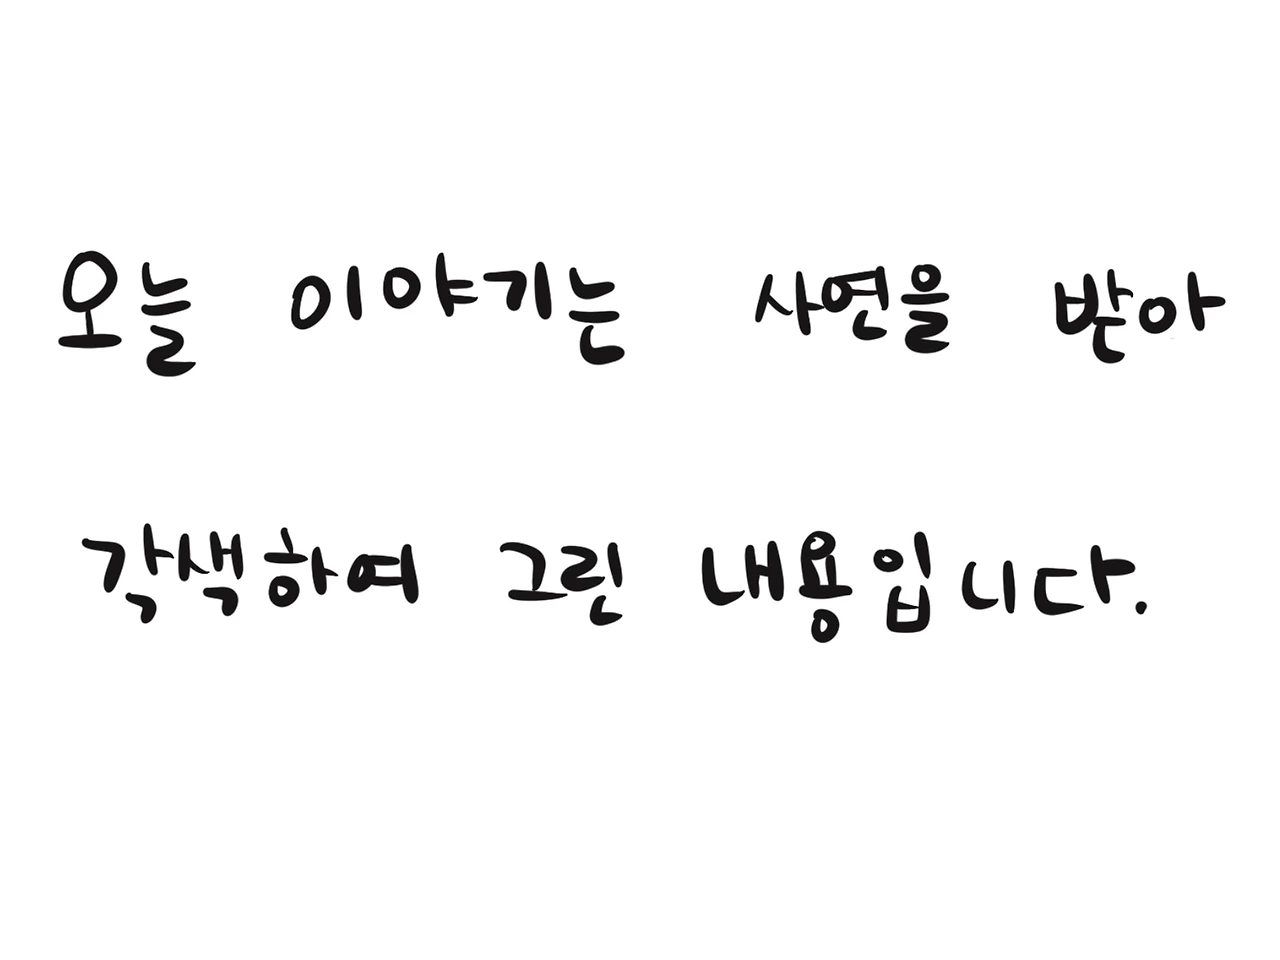 오늘 이야기는 사연을 받아
각색하여 그린 내용입니다.